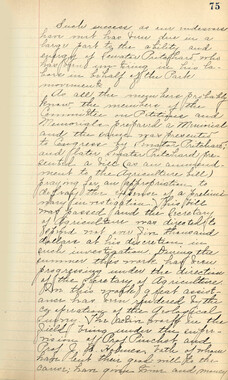 75
Such success as our endeavors
have met has been due in a
large part to the ability and
energy of Senator Pritchard who
has been untiring in his la-
bors in behalf of the Park
movement.
As all the members probably
know the members of the
Committee on Petitions and
Memorials prepared a Memorial
and the same was presented
to Congress by Senator Pritchard;
and later Senator Pritchard pre-
sented a bill (as an amend-
ment to the Agriculture bill)
praying for an appropriation to
defray the expense of a prelimi-
nary investigation. This bill
was passed and the Secretary
of Agriculture was directed to
expend not over five thousand
dollars at his discretion in
such investigation. During the
summer this work has been
progressing under the direction
of the Secretary of Agriculture.
In this work great assist-
ance has been rendered by the
co-operation of the Geological
Survey. The work in the
field being under the super-
vision of Prof Pinchot and
Prof J. A. Holmes, both of whom
have lent their good will to the
cause, have given time and money